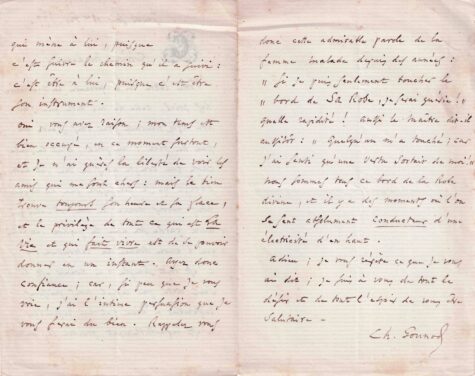 qui mène à lui, puisque
c'est suivre le chemin qu'il a suivi :
c'est être à lui, puisque c'est être
son instrument.
oui, vous avez raison ; mon temps est
bien occupé, en ce moment surtout,
et je n'ai guères la liberté de voir les
amis qui me sont chers : mais le bien
trouve toujours son heure et sa place,
et le privilège de tout ce qui est la
vie et qui fait vivre est de se pouvoir
donner en un instant. Ayez donc
confiance ; car, si peu que je vous
voie, j'ai l'intime persuasion que je
vous ferai du bien. Rappelez vous
donc cette admirable parole de la
femme malade depuis des années :
" Si je puis seulement toucher le
" bord de Sa Robe, je serai guérie ! "
quelle rapidité ! aussi le Maître dit-il
aussitôt : " Quelqu'un m'a touché ; car
j'ai senti qu'une vertu sortait de moi. "
nous sommes tous ce bord de la Robe
divine, et il y a des moments où l'on
se sent absolument conducteur d'une
électricité d'en haut.
Adieu ; je vous répète ce que je vous
ai dit ; je suis à vous de tout le
désir et de tout l'espoir de vous être
salutaire —
Ch. Gounod